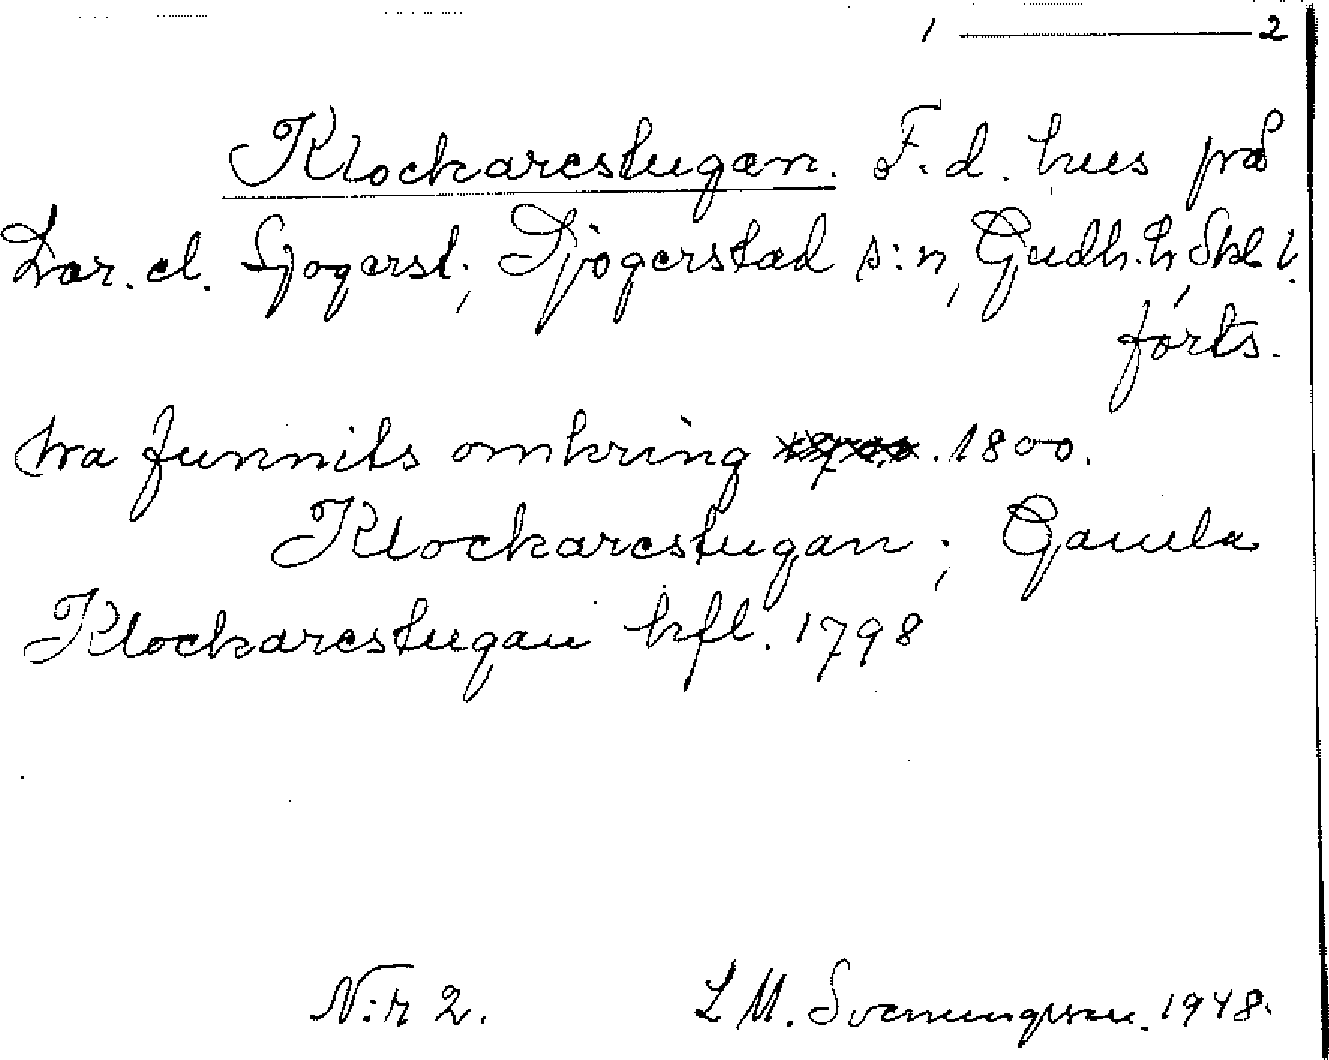 1 — 2
Klockarestugan. F. d. hus på
Lar. el. Sjogerst; Sjogerstad s:n, Gudh. h, Skbl.
forts.
ha funnits omkring 1800.
Klockarestugan; Gamla
Klockarestugan hfl. 1798
N:r 2. L M. Svenungsson. 1948.